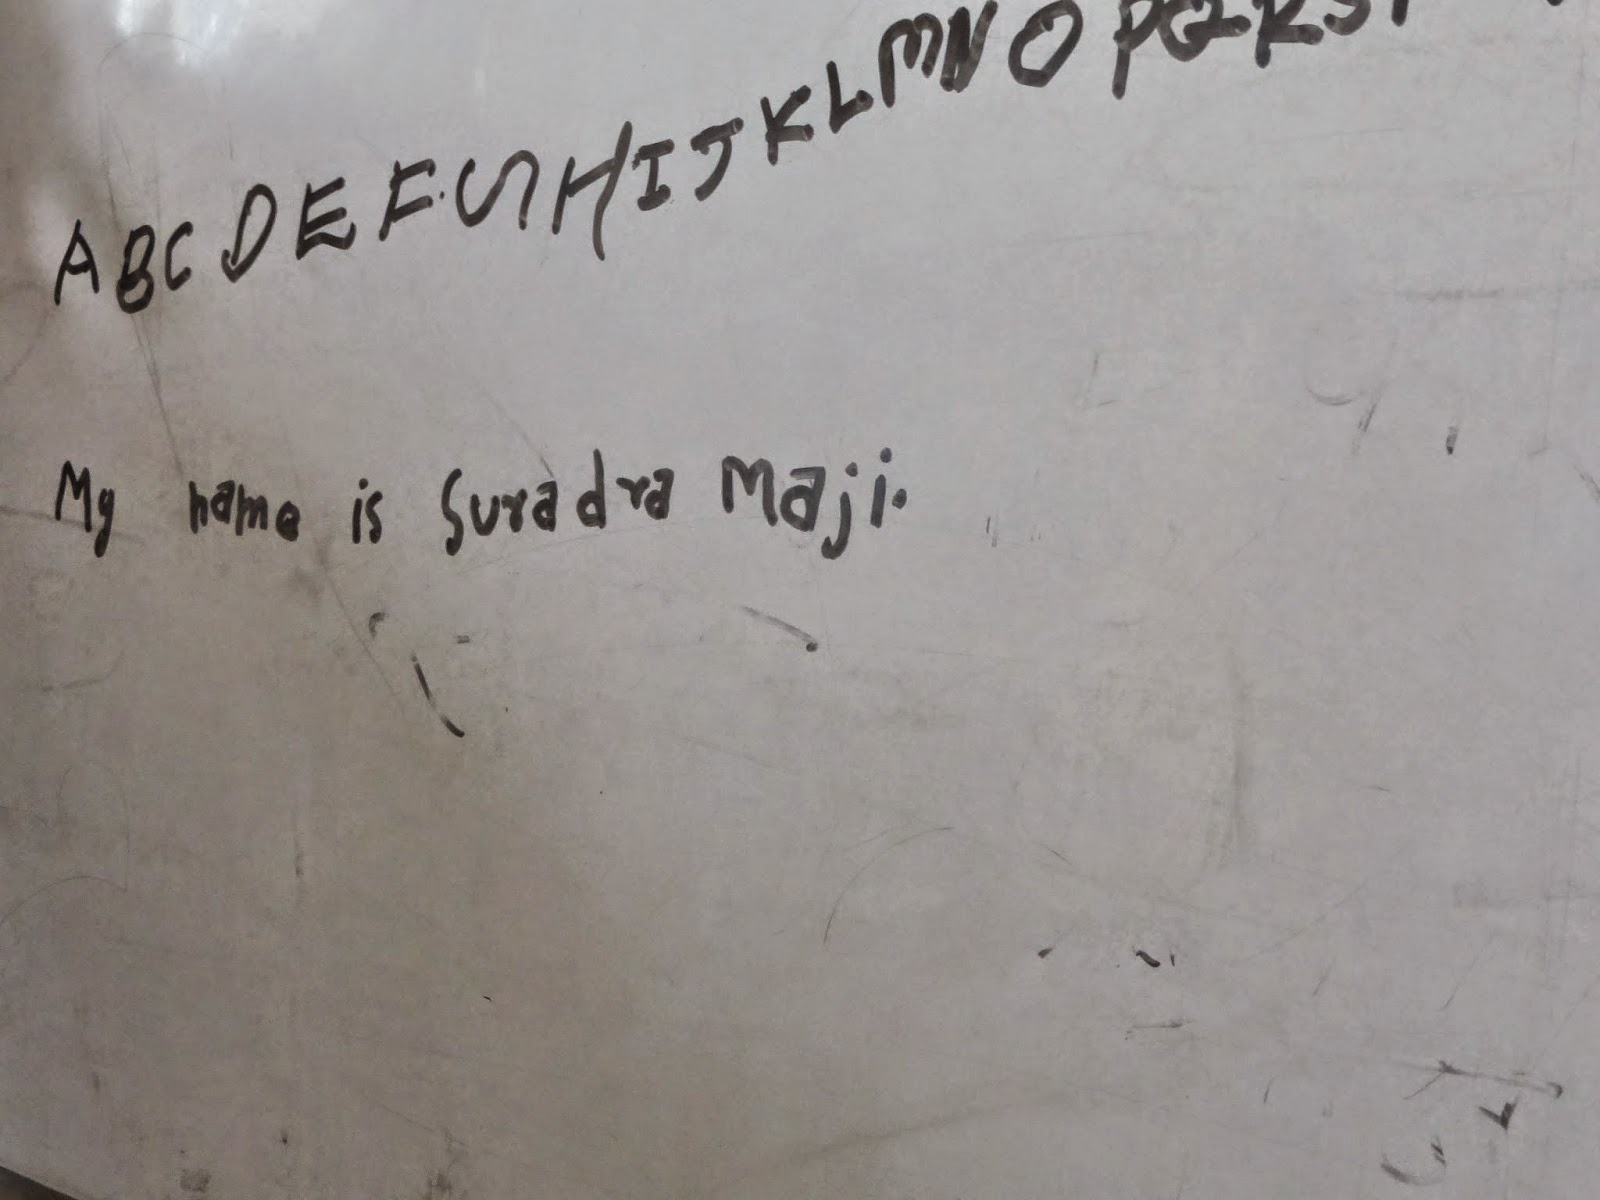 A B C D E F G H I J K L M N O P Q R S T
My name is Suradra Maji.